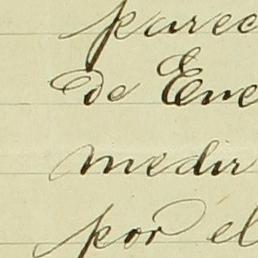 parec
de Ene
medir
por el